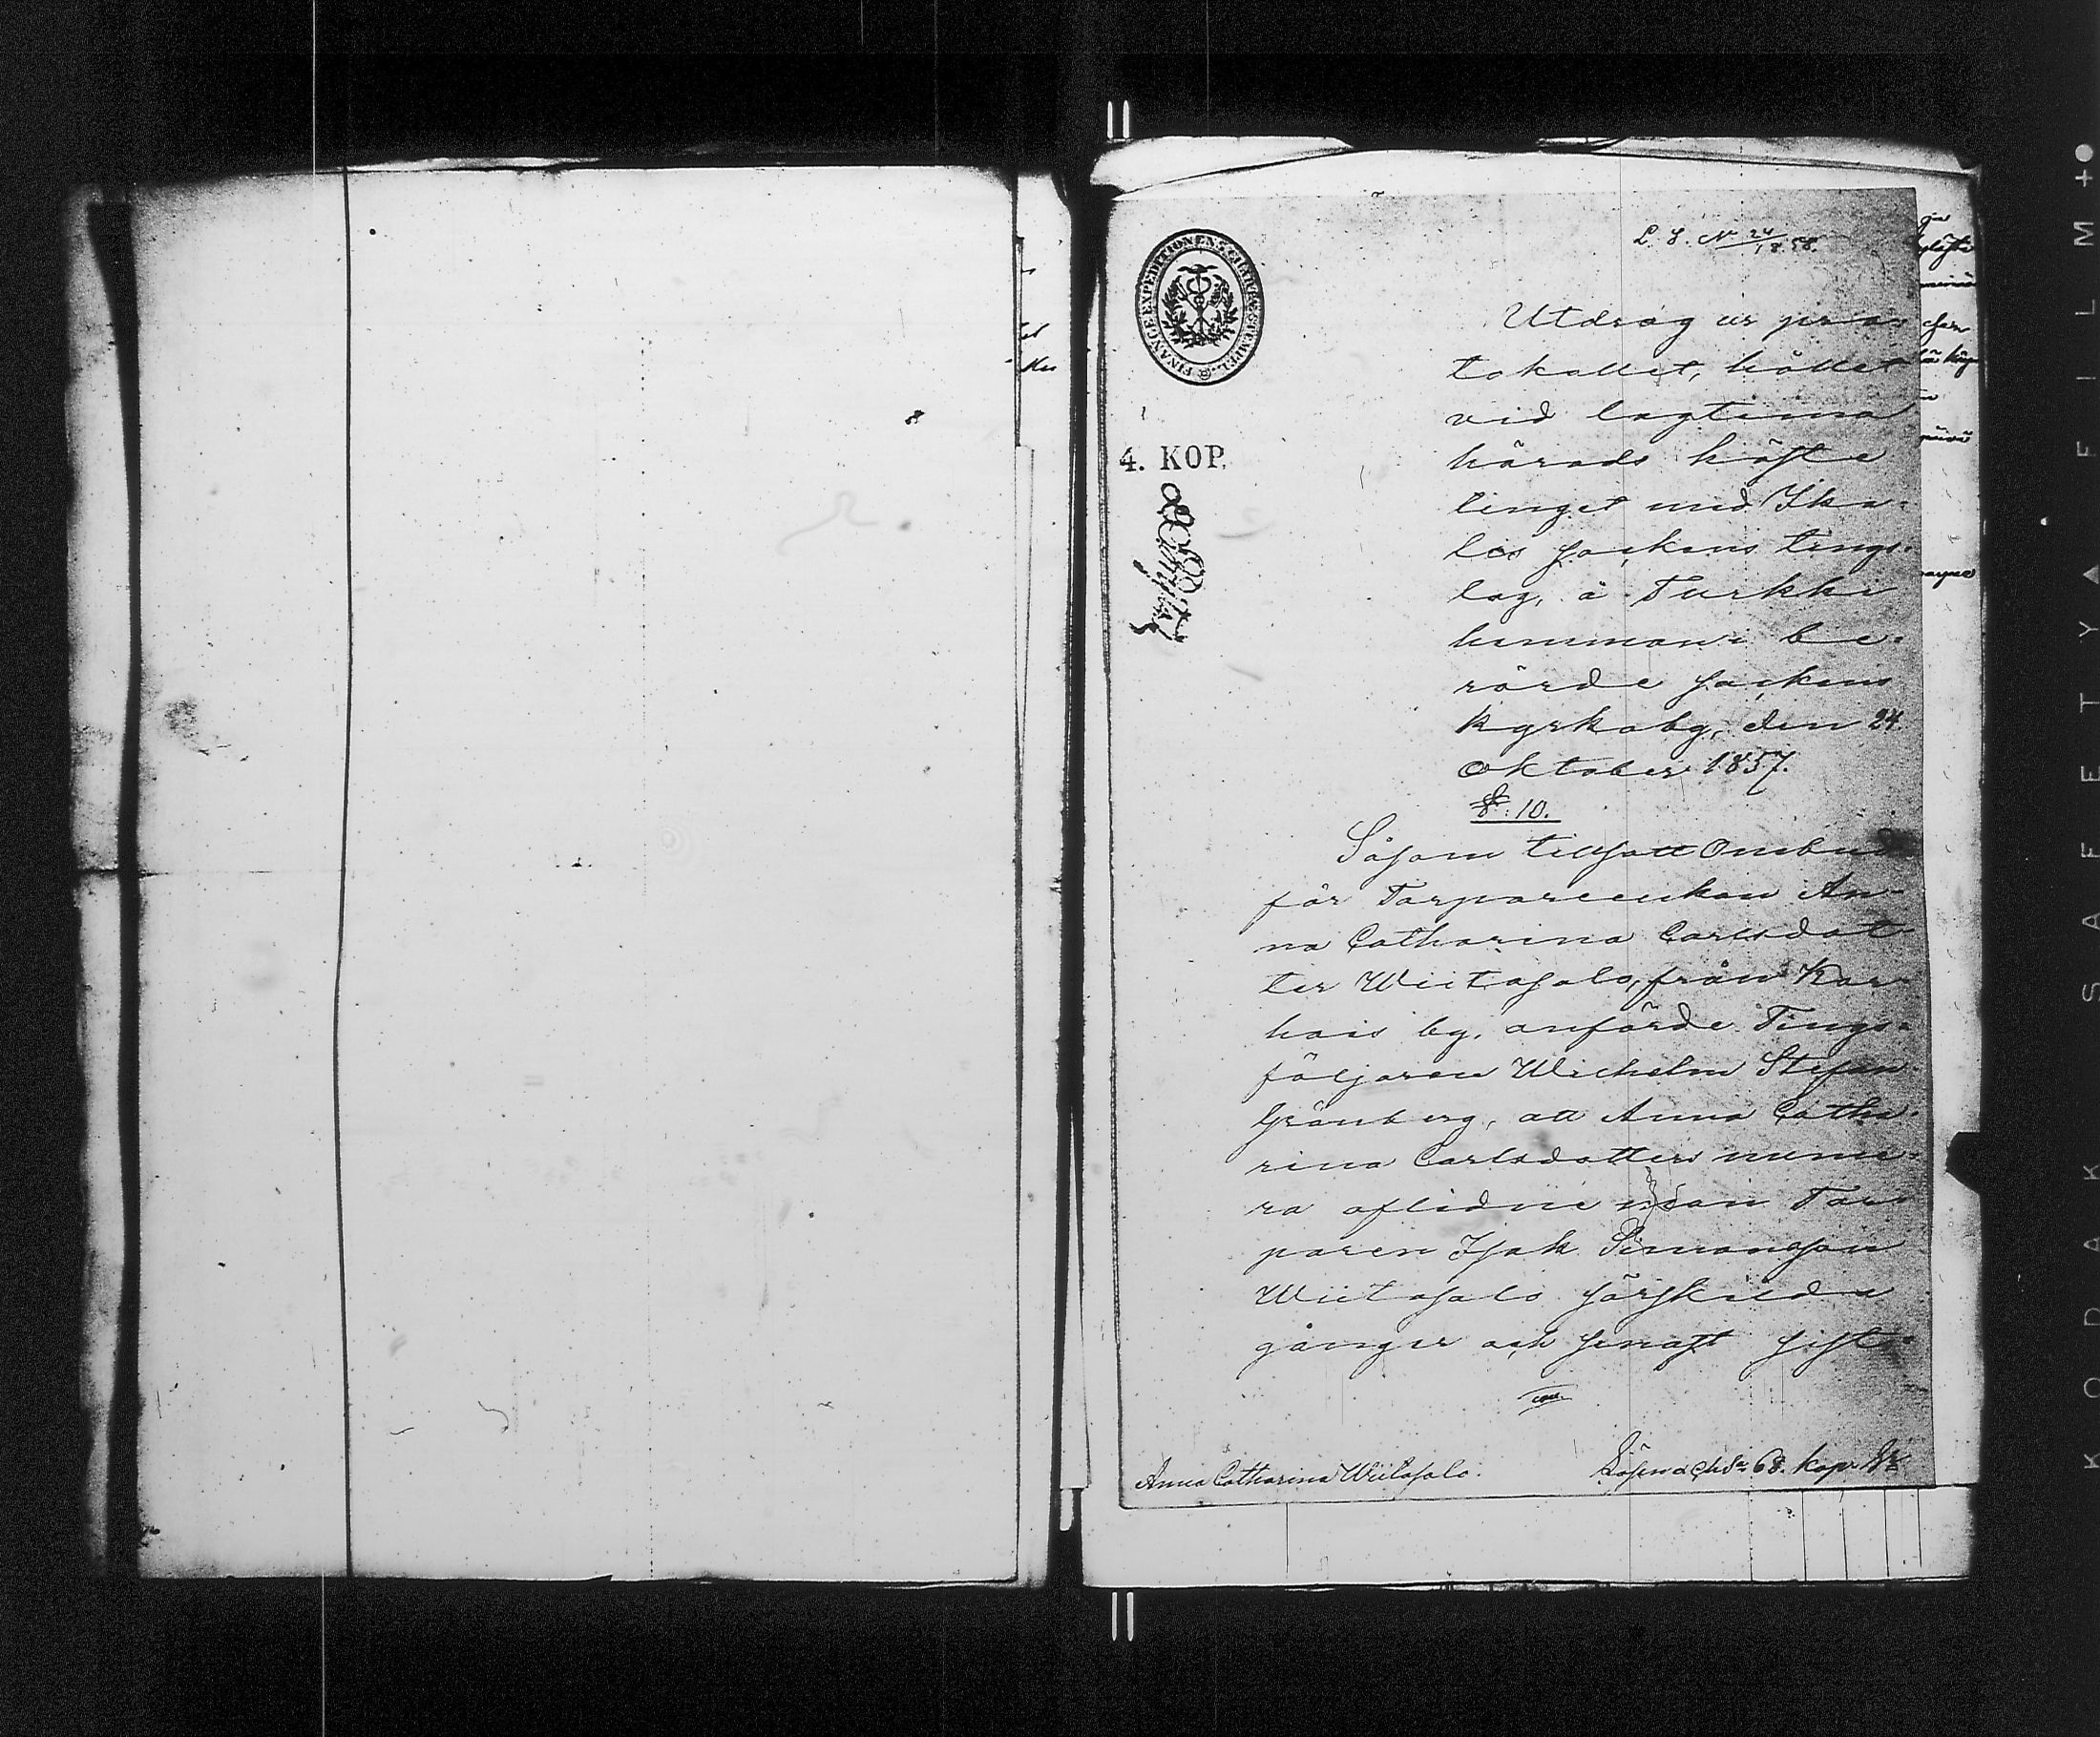 L. S. No 24/1858.
FINANCEEXPEDITIONENS CHARTÆ STEMPEL
4. KOP.
Utdrag ur pro-
tokollet, hållet
vid lagtima
härads höste
tinget med Ika-
lis sockens tings-
lag, å Turkki
hemman i be-
rörde sockens
kyrkoby, den 24.
Oktober 1857.
§: 10.
Såsom tillsatt Ombud
för Torpareenkan An-
na Catharina Carlsdot-
ter Wiitasalo, från Kar-
hois by, anförde Tings-
följaren Wilhelm Stefan
Grönberg, att Anna Catha-
rina Carlsdotters nume-
ra aflidne man Tor-
paren Isak Simonsson
Wiitasalo särskilda
gånger och senast sist-
Anna Catharina Wiitasalo.
Lösen a 68. kop.
KODAK SAFETY FILM